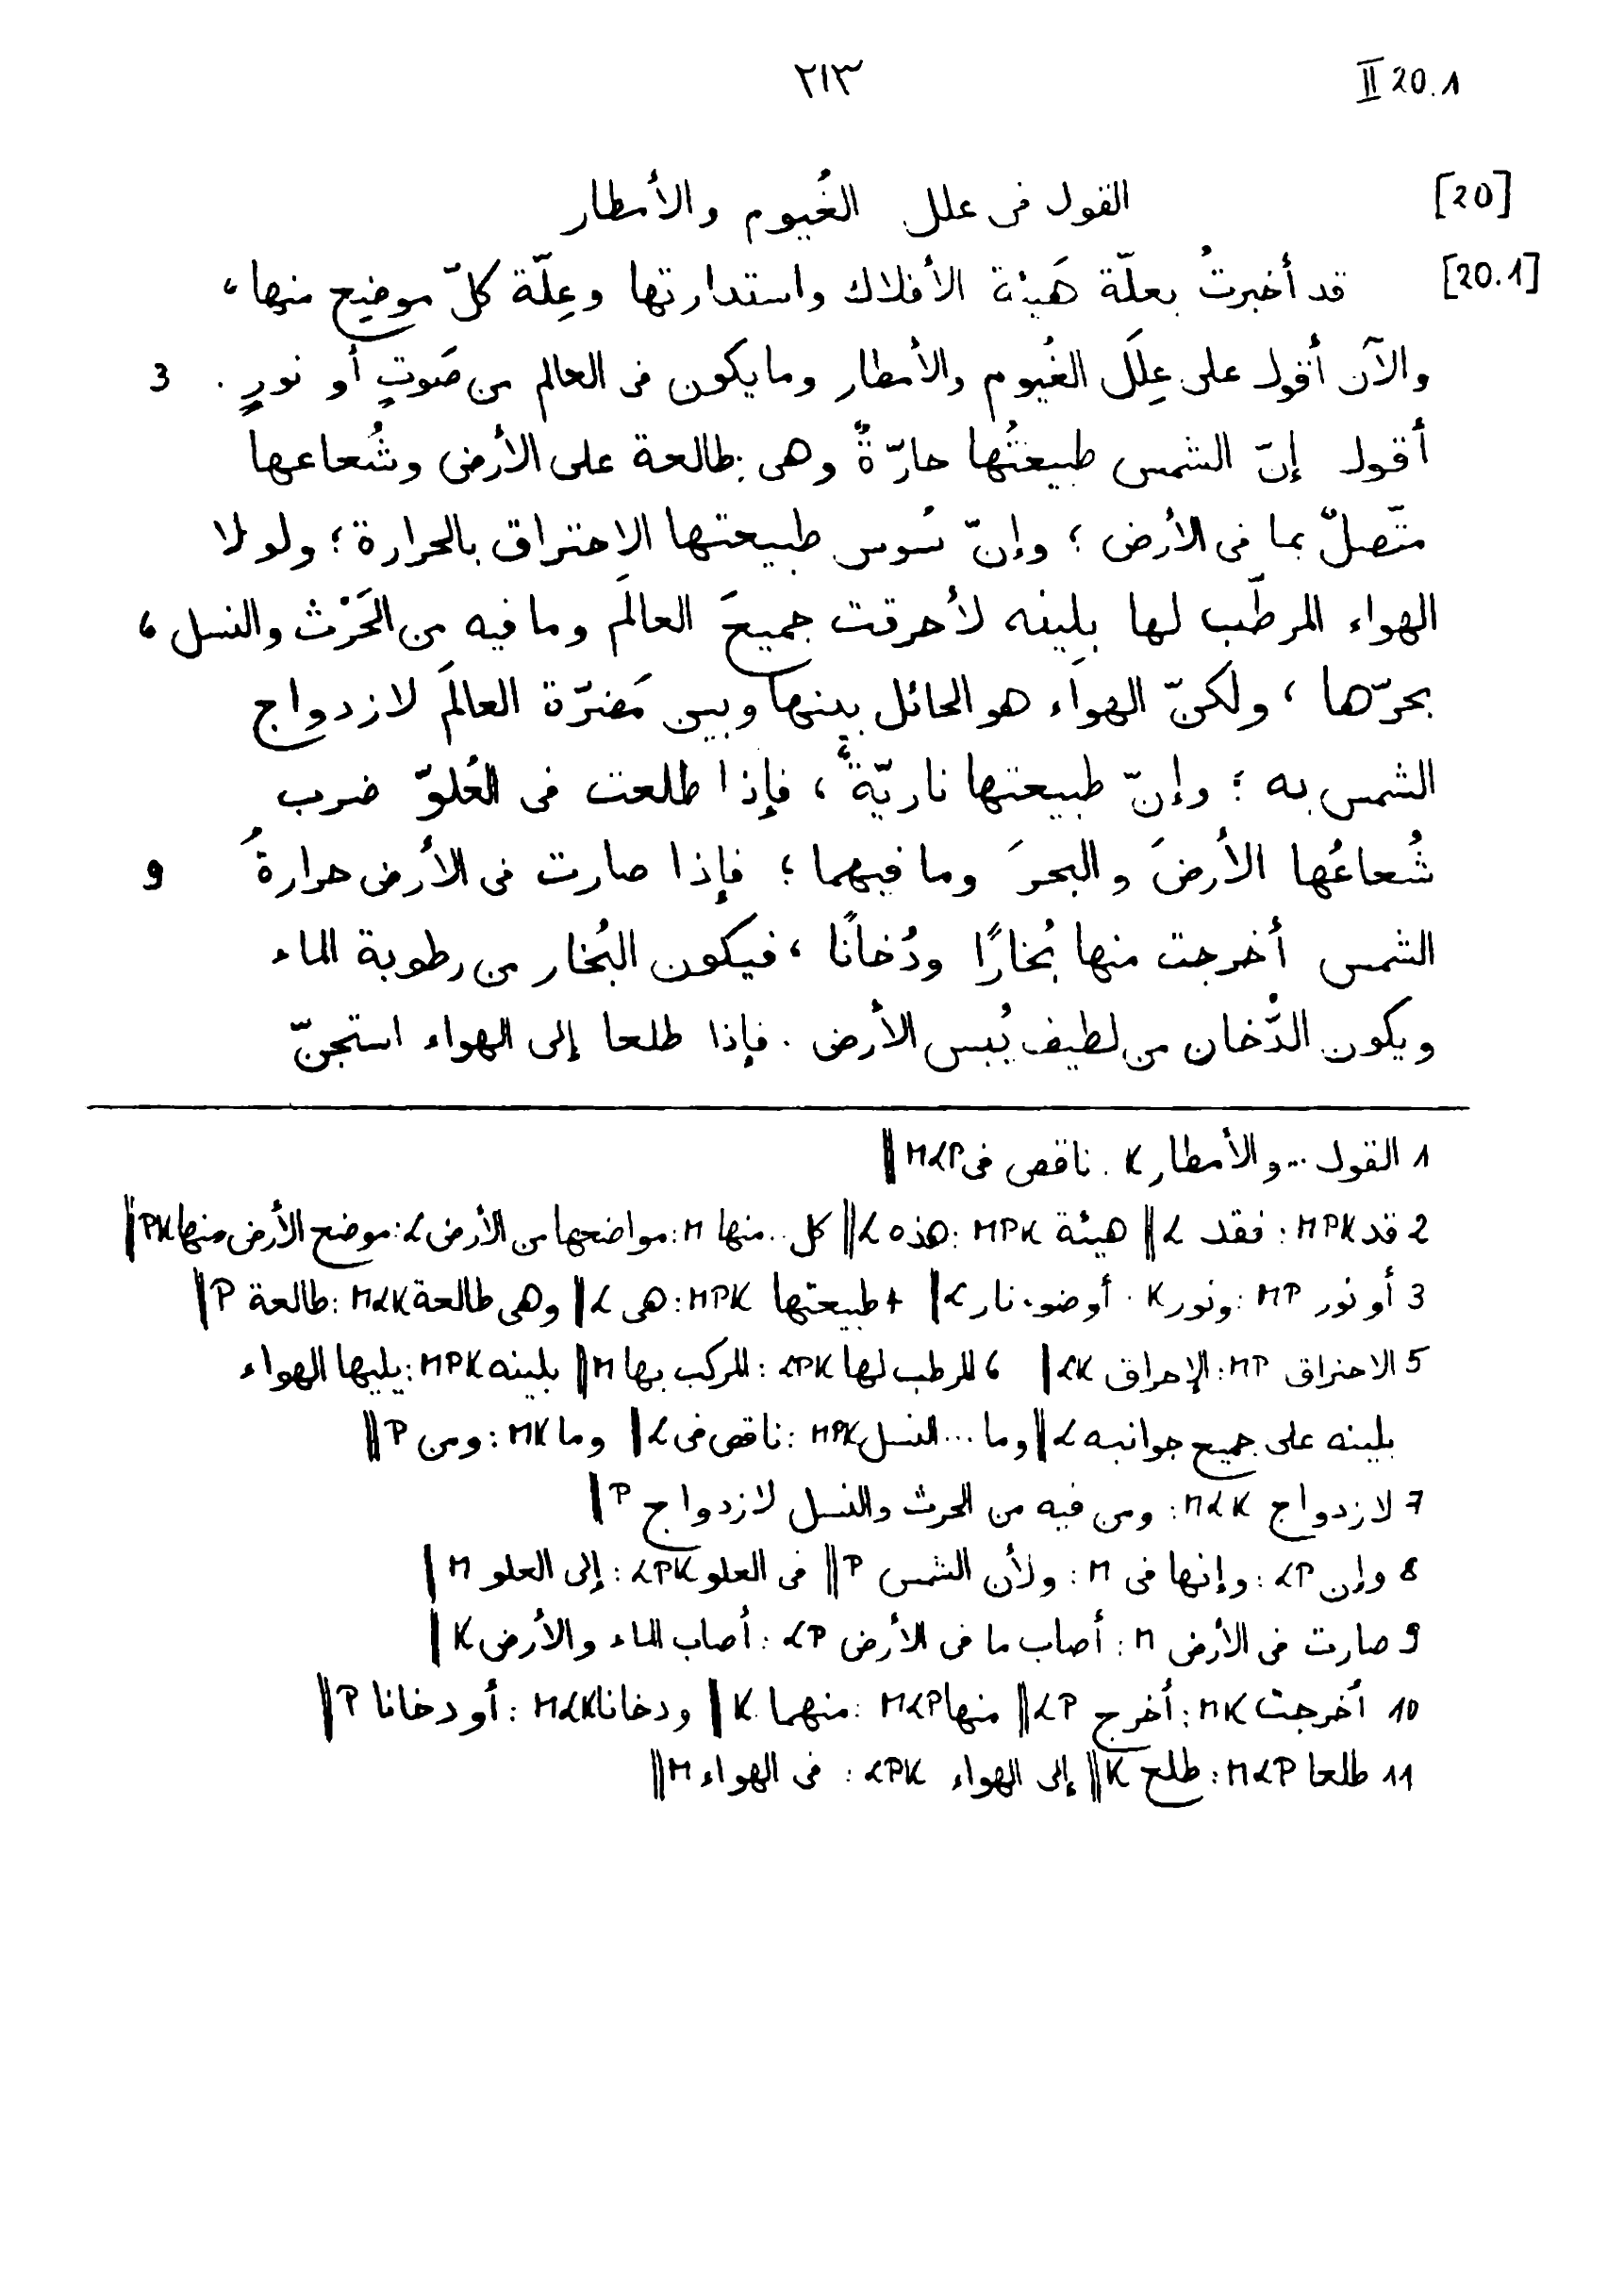 II 20.1 ٢١٣
[20] القول فى علل الغُيوم والأمطار
[20.1] قد أخبرتُ بعلّة هَيئة الأفلاك واستدارتها وعِلّة كلّ موضِع منها،
والآن أقول على عِلَل الغُيوم والأمطار وما يكون فى العالم من صَوتٍ أو نورٍ. 3
أقول إنّ الشمس طبيعتُها حارّةٌ وهى طالعة على الأرض وشُعاعها
متّصلٌ بما فى الأرض؛ وإنّ سُوس طبيعتها الاحتراق بالحرارة؛ ولولا
الهواء المرطّب لها بلِينه لأحرقت جميعَ العالَم وما فيه من الحَرْث والنسل 6
بحرّها، ولكنّ الهواء هو الحائل بينها وبين مَضرّة العالَم لازدواج
الشمس به؛ وإنّ طبيعتها ناريّةٌ، فإذا طلعت فى العُلوّ ضرب
شُعاعُها الأرضَ والبحرَ وما فيهما؛ فإذا صارت فى الأرض حرارةُ 9
الشمس أخرجت منها بُخارًا ودُخانًا، فيكون البُخار من رطوبة الماء
ويكون الدُّخان من لطيف يُبس الأرض. فإذا طلعا إلى الهواء استجنّ
1 القول...والأمطار K. ناقص فى MLP ||
2 قد MPK: فقد L || هيئة MPK: هذه L || كل..منها M: مواضعها من الأرض L: موضع الأرض منها PK ||
3 أو نور MP: ونور K. أو ضوء نار L || 4 طبيعتها MPK: هى L || وهى طالعة MLK: طالعة P ||
5 الاحتراق MP: الإحراق LK || 6 المرطب لها LPK: المركب بها M || بلينه MPK: يليها الهواء
بلينه على جميع جوانبه L || وما...النسل MPK: ناقص فى L || وما MK: ومن P ||
7 لازدواج MLK: ومن فيه من الحرث والنسل لازدواج P ||
8 وإن LP: وإنها فى M: ولأن الشمس P || فى العلو LPK: إلى العلو M ||
9 صارت فى الأرض M: أصاب ما فى الأرض LP: أصاب الماء والأرض K ||
10 أخرجت MK: أخرج LP || منها MLP: منهما K || ودخانا MLK: أو دخانا P ||
11 طلعا MLP: طلع K || إلى الهواء LPK: فى الهواء M ||